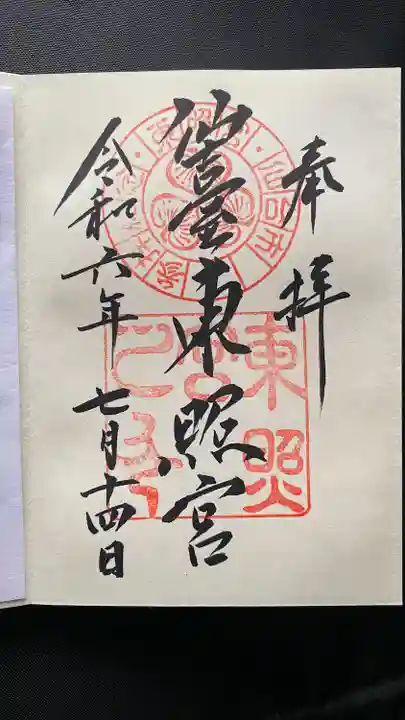 奉拝
仙臺東照宮
令和六年七月十四日
東照
宮